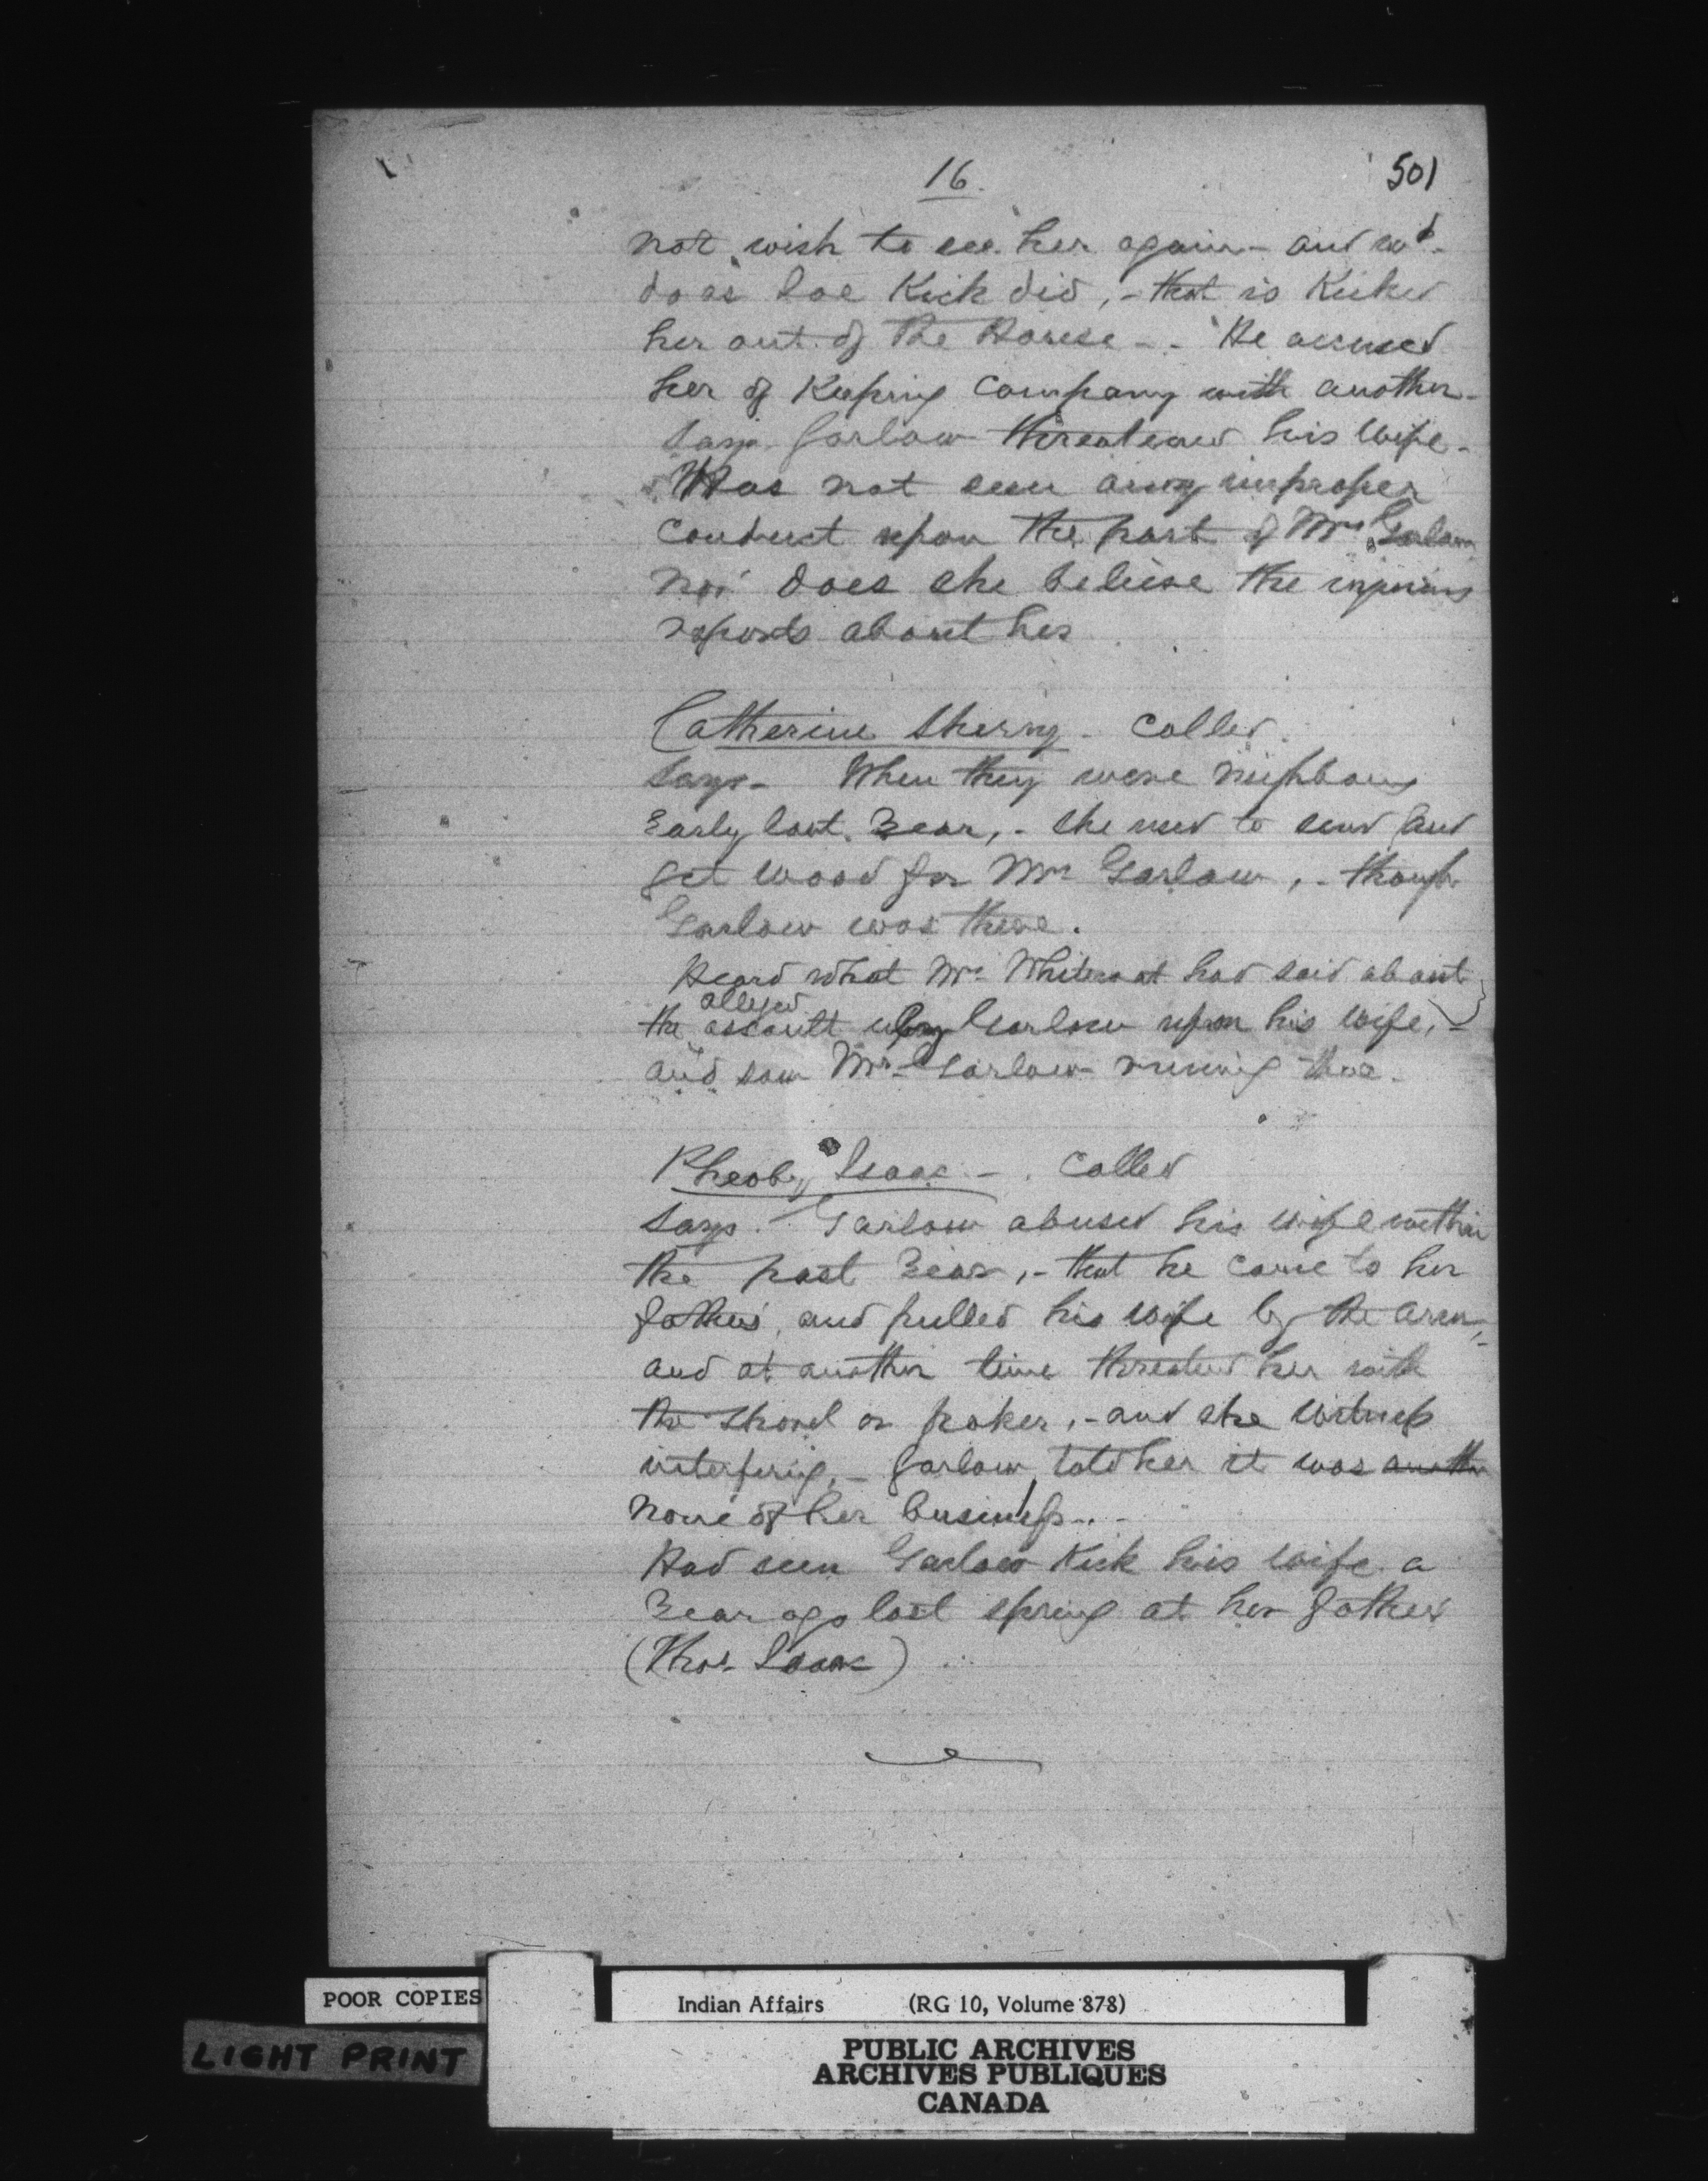 16.
501
not wish to see her again - and wd
do as Joe Kick did, - that is Kicked
her out of the House - - He accused
her of Keeping Company with another -
Says. Garlow threatened his wife -
Has not seen any improper
Conduct upon the part of Mrs Garlow
nor does she believe the injurious
reports about her
Catherine - Called.
Says - When they were neighbours
Early last Year, - she used to send and
get wood for Mrs Garlow, - though
Garlow was there.
Heard what Mrs Whitecoat had said about
alleged
the assault by Garlow upon his wife, -
and saw Mrs Garlow running there -
Pheoby Isaac - . Called
Says. Garlow abused his wife within
the past Year, - that he came to her
father's, and pulled his wife by the arm, -
and at another time threatened her with
the Shovel or poker, - and she witness
interfering, - Garlow told her it was another
none of her business . . -
Had seen Garlow Kick his wife a
Year ago last spring at her fathers
(Thos. Isaac)
POOR COPIES
LIGHT PRINT
Indian Affairs (RG 10, Volume 878)
PUBLIC ARCHIVES
ARCHIVES PUBLIQUES
CANADA